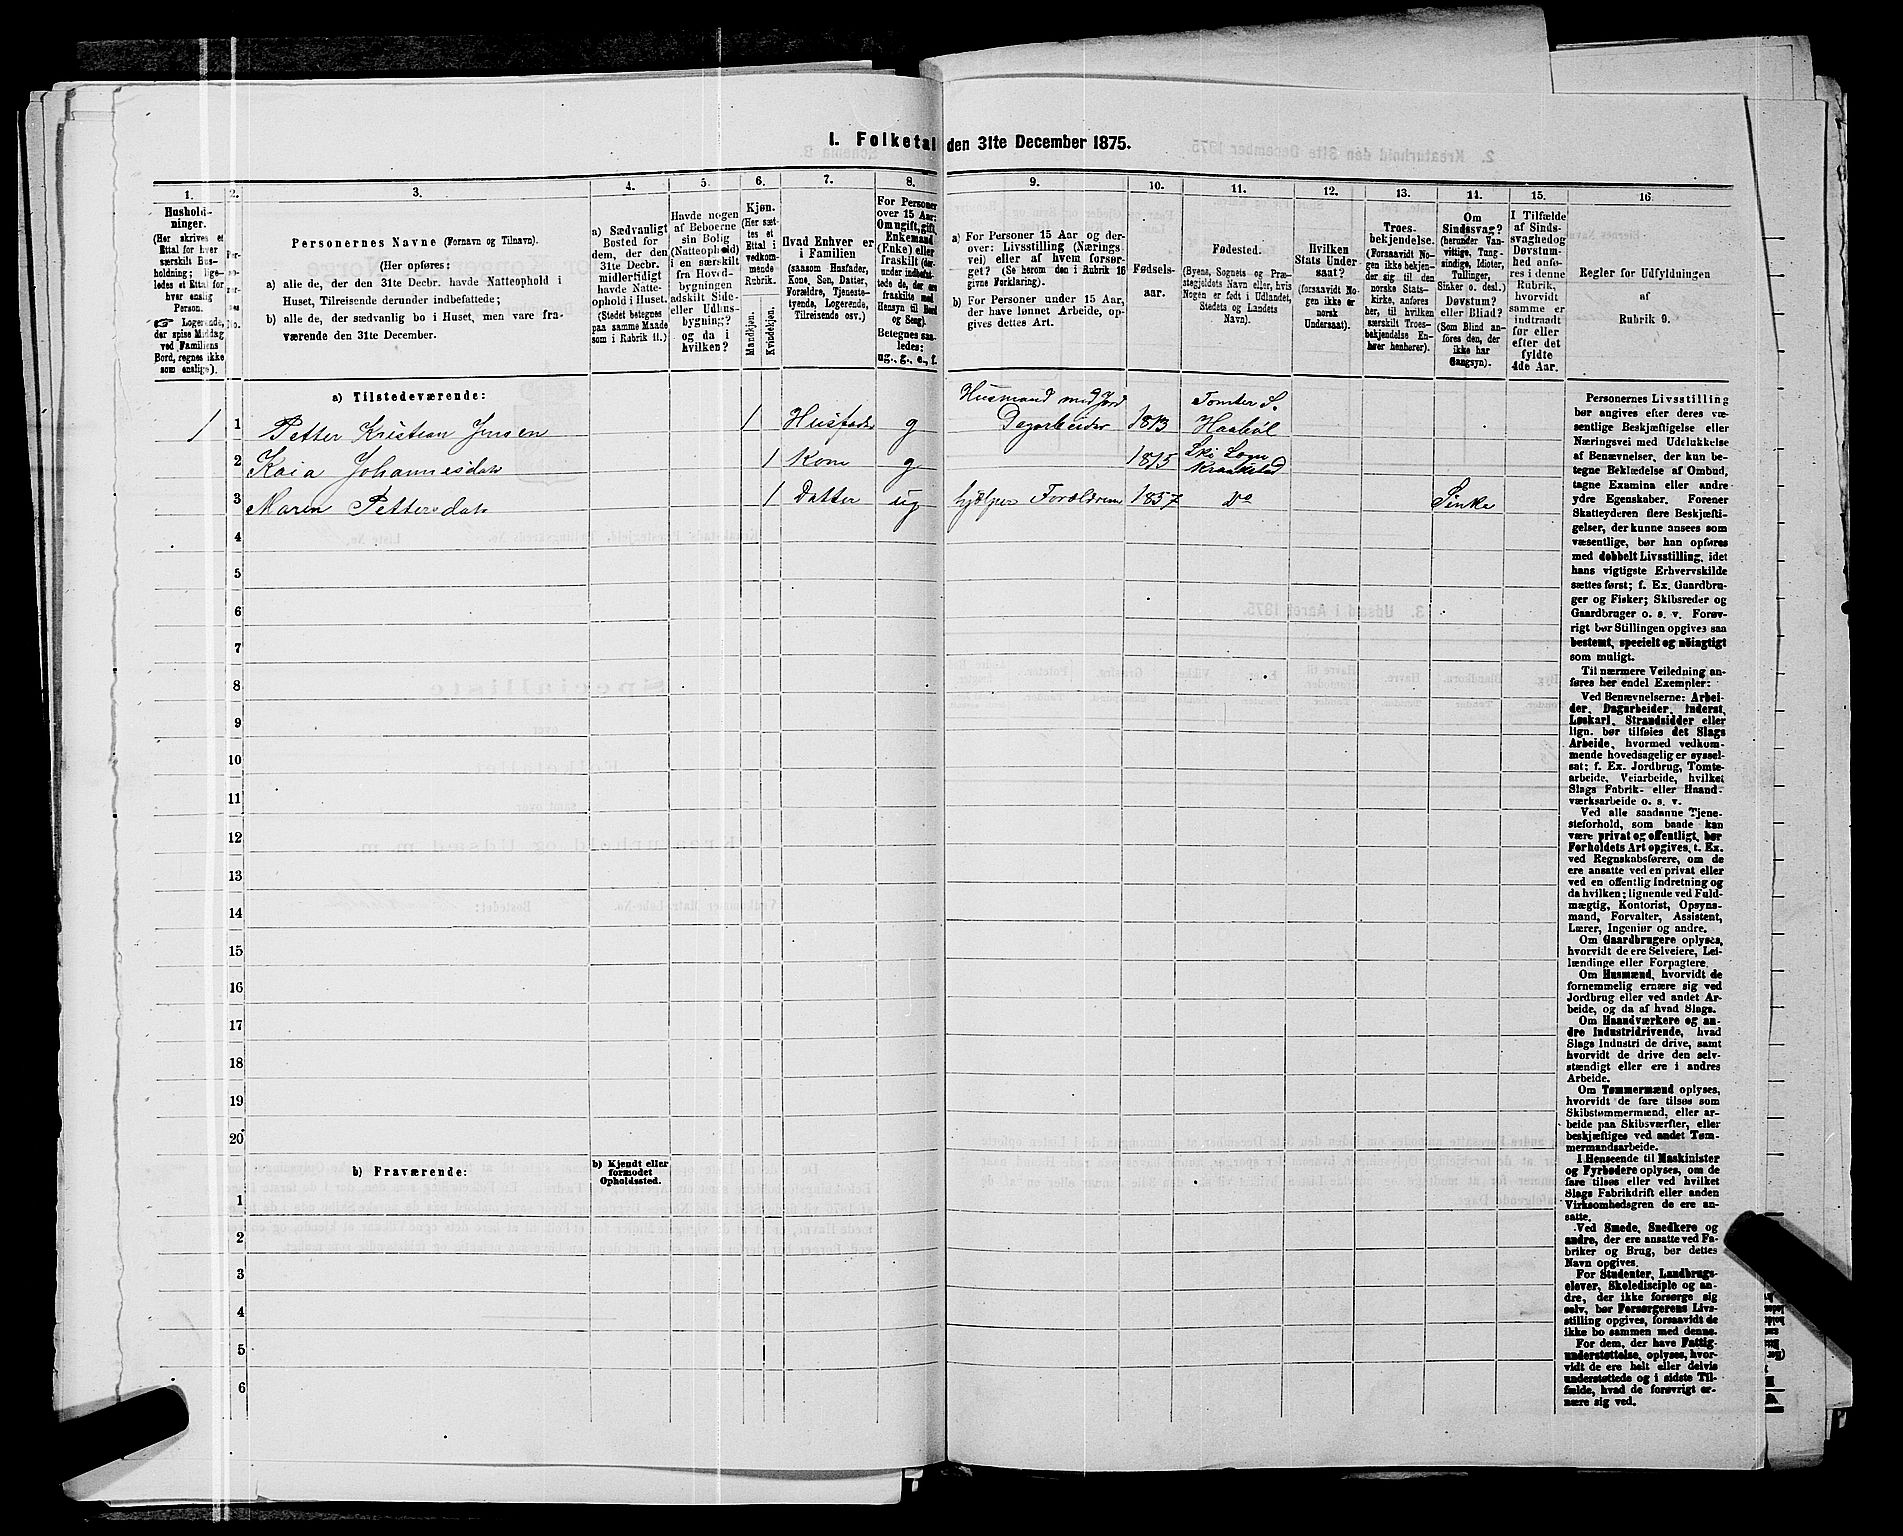 I. Folketal den 31te December 1875.
1. 2. 3. 4. 5. 6. 7. 8. 9. 10. 11. 12. 13. 14. 15. 16.
Hushold-
ninger.
(Her skrives et
Ettal for hver
særskilt Hus-
holdning; lige-
ledes et Ettal for
hver enslig
Person.
☞ Logerende,
der spise Middag
ved Familiens
Bord, regnes ikke
som enslige).
Per-
so-
ner-
nes
No.
Personernes Navne (Fornavn og Tilnavn).
(Her opføres:
a) alle de, der den 31te Decbr. havde Natteophold i
Huset, Tilreisende derunder indbefattede;
b) alle de, der sædvanlig bo i Huset, men vare fra-
værende den 31te December.
a) Sædvanligt
Bosted for
dem, der den
31te Decbr.
midlertidigt
havde Natte-
ophold i Huset.
(Stedet betegnes
paa samme Maade
som i Rubrik 11.)
Havde nogen
af Beboerne
sin Bolig
(Natteophold)
i en særskilt
fra Hoved-
bygningen
adskilt Side-
eller Udhus-
bygning?
og da i
hvilken?
Kjøn.
(Her sæt-
tes et
Ettal i
vedkom-
mende
Rubrik.
Mandkjøn.
Kvindekjøn.
Hvad Enhver er
i Familien
(saasom Husfader,
Kone, Søn, Datter,
Forældre, Tjeneste-
tyende, Logerende,
Tilreisende osv.)
For Personer
over 15 Aar:
Om ugift, gift,
Enkemand
(Enke) eller
fraskilt (der-
under indbefat-
tede de, der ere
fraskilte med
Hensyn til Bord
og Seng).
Betegnes saa-
ledes:
ug., g., e., f.
a) For Personer 15 Aar og der-
over: Livsstilling (Nærings-
vei) eller af hvem forsør-
get? (Se herom den i Rubrik 16
givne Forklaring).
b) For Personer under 15 Aar,
der have lønnet Arbeide, op-
gives dettes Art.
Fødsels-
aar.
Fødested.
(Byens, Sognets og Præ-
stegjeldets Navn eller, hvis
Nogen er født i Udlandet,
Stedets og Landets
Navn).
Hvilken
Stats Under
saat?
(forsaavidt No-
gen ikke er
norsk
Undersaat).
Troes-
bekjendelse.
(Forsaavidt No-
gen ikke bekjen-
der sig til den
norske Stats-
kirke, anføres
her, til hvilken
særskilt Troes-
bekjendelse En-
hver henhører).
Om
Sindssvag?
(herunder Van-
vittige, Tung-
sindige, Idioter,
Tullinger,
Sinker o. desl.)
Døvstum?
eller Blind?
(Som Blind an-
føres den, der
ikke har
Gangsyn).
I Tilfælde
af Sinds-
svaghedog
Døvstum-
hed anfø-
res i denne
Rubrik,
hvorvidt
samme er
indtraadt
før eller
efter det
fyldte
4de Aar.
Regler for Udfyldningen
af
Rubrik 9.
a) Tilstedeværende:
Husmand med Jord Tomter S.
1 1 Petter Kristian Jensen 1 Husfader g Dagarbeider 1813 Haabøl
2 Kaia Johannesdat 1 Kone g 1815 Ski Sogn
Kraakstad
3 Maren Pettersdat 1 Datter ug hjelper Forældrene 1857 Do Sinke
4
5
6
7
8
9
10
11
12
13
14
15
16
17
18
19
20
b) Fraværende:
b) Kjendt eller
formodet
Opholdssted.
1
2
3
4
5
6
Personernes Livsstilling
bør angives efter deres væ-
sentlige Beskjæftigelse eller
Næringsvei med Udelukkelse
af Benævnelser, der kun be-
tegne Beklædelse af Ombud,
tagne Examina eller andre
ydre Egenskaber. Forener
Skatteyderen flere Beskjæfti-
gelser, der kunne ansees som
væsentlige, bør han opføres
med dobbelt Livsstilling, idet
hans vigtigste Erhvervskilde
sættes først; f. Ex. Gaardbru-
ger og Fisker; Skibsreder og
Gaardbruger o. s. v. Forøv-
rigt bør Stillingen opgives saa
bestemt, specielt og nöiagtigt
som muligt.
Til nærmere Veiledning an-
føres her endel Exempler:
Ved Benævnelserne: Arbei-
der, Dagarbeider, Inderst,
Løskarl, Strandsidder eller
lign. bør tilføies det Slags
Arbeide, hvormed vedkom-
mende hovedsagelig er syssel-
sat; f. Ex. Jordbrug, Tomte-
arbeide, Veiarbeide, hvilket
Slags Fabrik- eller Haand-
værksarbeide o. s. v.
Ved alle saadanne Tjene-
steforhold, som baade kan
være privat og offentligt, bør
Forholdets Art opgives, t. Ex.
ved Regnskabsførere, om de
ere ansatte ved en privat eller
ved en offentlig Indretning og
da hvilken; lignende ved Fuld-
mægtig, Kontorist, Opsyns-
mand, Forvalter, Assistent,
Lærer, Ingeniør og andre.
Om Gaardbrugere oplyses,
hvorvidt de ere Selveiere, Lei-
lændinge eller Forpagtere.
Om Husmænd, hvorvidt de
fornemmelig ernære sig ved
Jordbrug eller ved andet Ar-
beide, og da af hvad Slags.
Om Haandværkere og an-
dre Industridrivende, hvad
Slags Industri de drive, samt
hvorvidt de drive den selv-
stændigt eller ere i andres
Arbeide.
Om Tømmermænd oplyses,
hvorvidt de fare tilsøs som
Skibstømmermænd, eller ar-
beide paa Skibsværfter, eller
beskjæftiges ved andet Tøm-
mermandsarbeide.
I Henseende til Maskinister
og Fyrbødere oplyses, om de
fare tilsøs eller ved hvilket
Slags Fabrikdrift eller anden
Virksomhedsgren de ere an-
satte.
Ved Smede, Snedkere og
andre, der ere ansatte ved Fa-
briker og Brug, bør dettes
Navn opgives.
For Studenter, Landbrugs-
elever, Skoledisciple og an-
dre, der ikke forsørge sig
selv, bør Forsørgerens Livs-
stilling opgives, forsaavidt de
ikke bo sammen med denne.
For dem, der have Fattig-
understøttelse, oplyses, hvor-
vidt de ere helt eller delvis
understøttede og i sidste Til-
fælde, hvad de forøvrigt er-
nære sig ved.